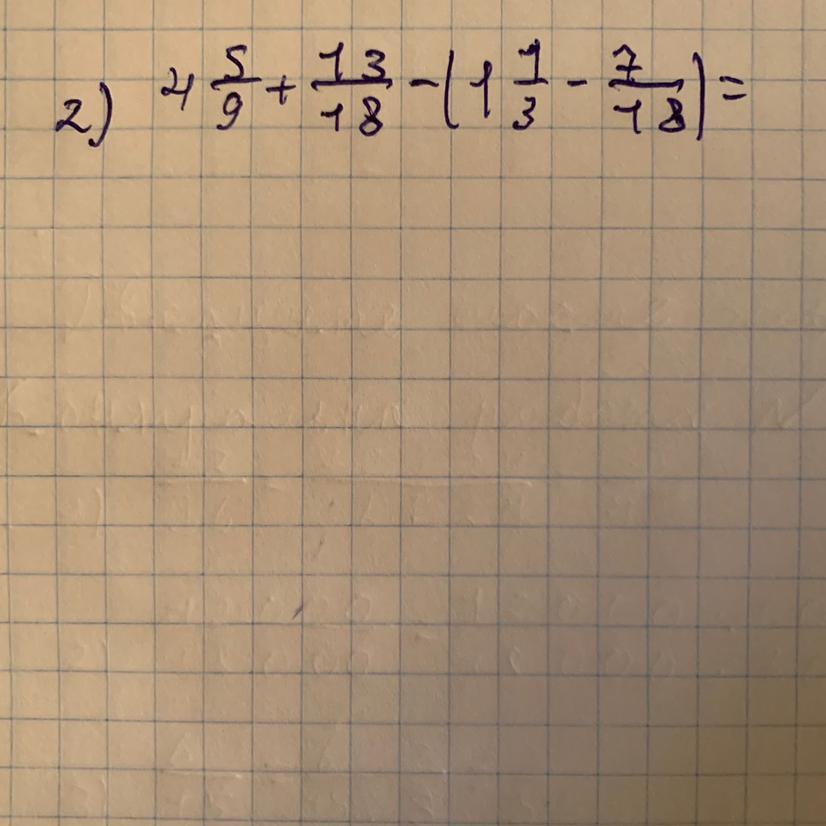 2) 4 5/9 + 13/18 - (1 1/3 - 7/18) =